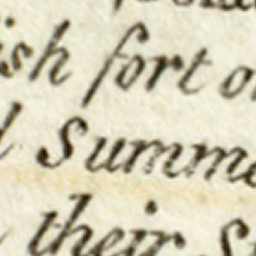 ish fort o
l Summe
their S